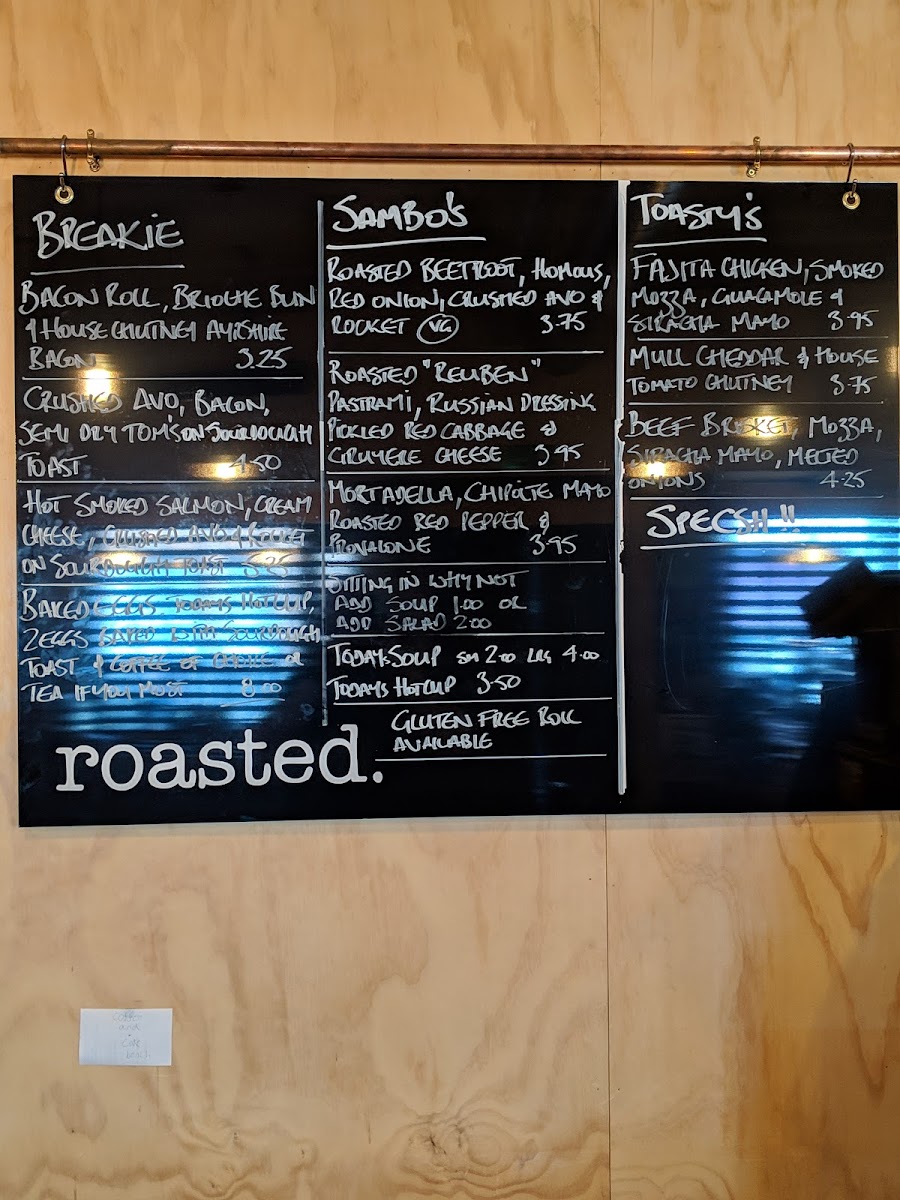 BREAKIE
BACON ROLL, BRIOCHE BUN
& HOUSE CHUTNEY AYRSHIRE
BACON 3.25
CRUSHED AVO, BACON,
SEMI DRY TOM'S ON SOURDOUGH
TOAST 4.50
HOT SMOKED SALMON, CREAM
CHEESE, CRUSHED AVO & ROCKET
ON SOURDOUGH TOAST 5.25
BAKED EGGS TODAYS HOTCUP,
2 EGGS BAKED WITH SOURDOUGH
TOAST & COFFEE OF CHOICE OR
TEA IF YOU MOST 8.00
SAMBO'S
ROASTED BEETROOT, HOMOUS,
RED ONION, CRUSHED AVO &
ROCKET VG 3.75
ROASTED "REUBEN"
PASTRAMI, RUSSIAN DRESSING
PICKLED RED CABBAGE &
GRUYERE CHEESE 3.95
MORTADELLA, CHIPOTLE MAYO
ROASTED RED PEPPER &
PROVALONE 3.95
SITTING IN WHY NOT
ADD SOUP 1.00 OR
ADD SALAD 2.00
TODAYS SOUP SM 2.00 LRG 4.00
TODAYS HOTCUP 3.50
GLUTEN FREE ROLL
AVAILABLE
TOASTY'S
FAJITA CHICKEN, SMOKED
MOZZA, GUACAMOLE &
SIRACHA MAYO 3.95
MULL CHEDDAR & HOUSE
TOMATO CHUTNEY 3.75
BEEF BRISKET, MOZZA,
SIRACHA MAYO, MELTED
ONIONS 4.25
SPECSH!!
roasted.